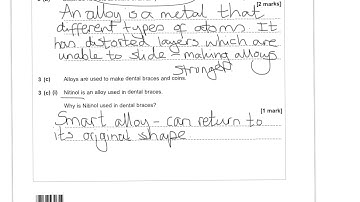 [2 marks]
An alloy is a metal that
different types of atoms. It
has distorted layers which are
unable to slide - making alloys
stronger
3 (c) Alloys are used to make dental braces and coins.
3 (c) (i) Nitinol is an alloy used in dental braces.
Why is Nitinol used in dental braces?
[1 mark]
Smart alloy - can return to
its original shape